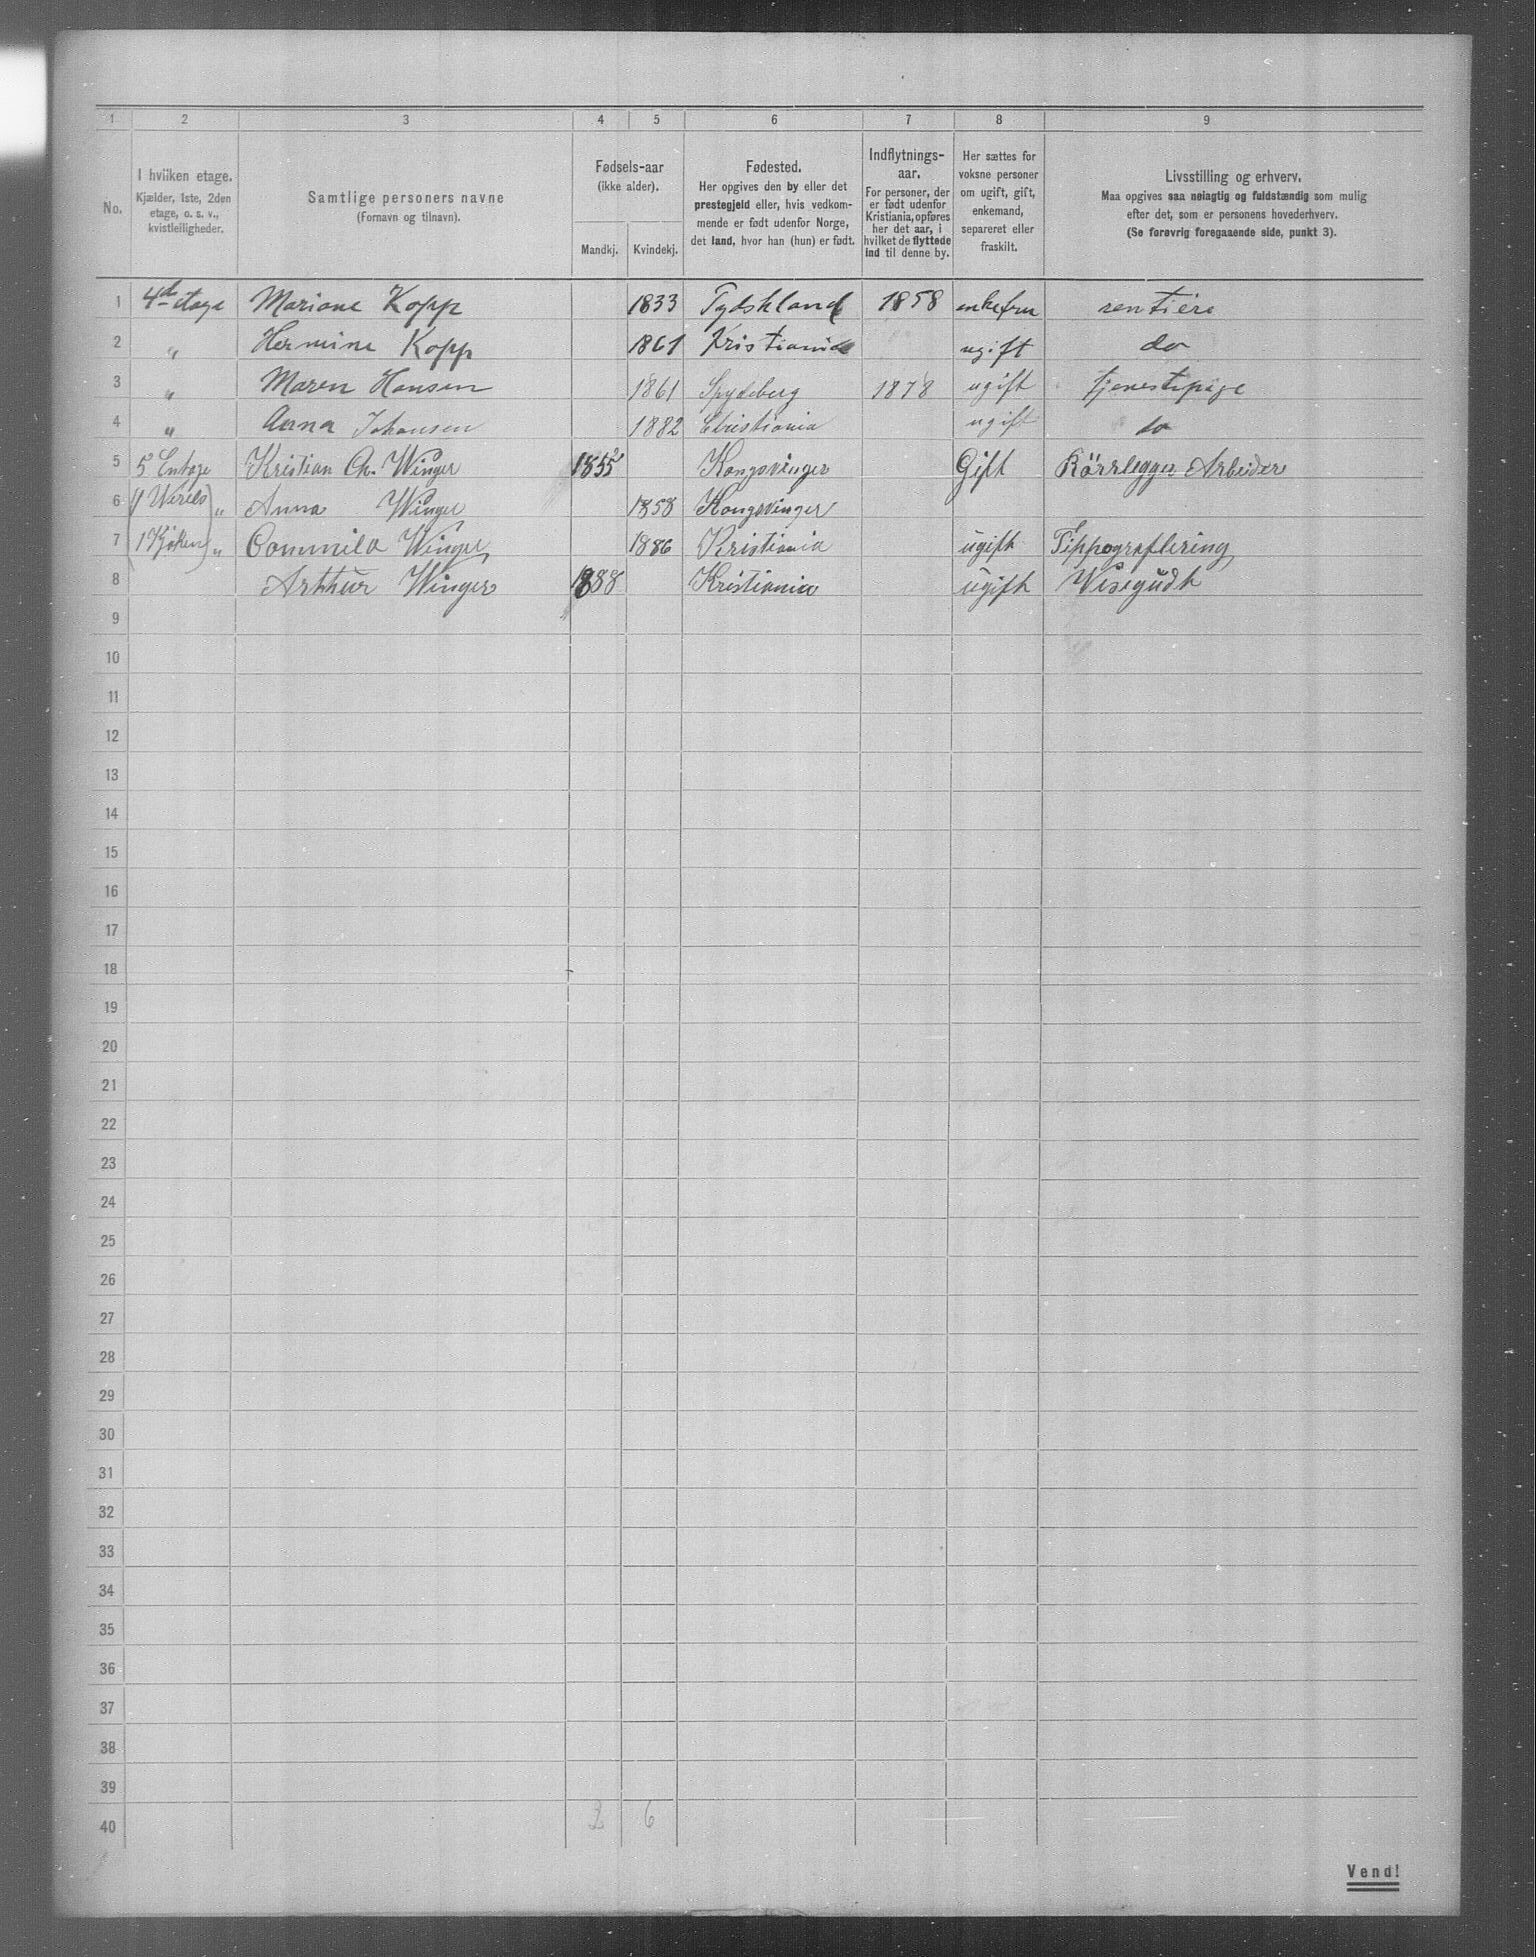 1 2 3 4 5 6 7 8 9
No.
I hvilken etage.
Kjælder, 1ste, 2den
etage, o. s. v.,
kvistleiligheder.
Samtlige personers navne
(Fornavn og tilnavn).
Fødsels-aar
(ikke alder).
Mandkj. Kvindekj.
Fødested.
Her opgives den by eller det
prestegjeld eller, hvis vedkom-
mende er født udenfor Norge,
det land, hvor han (hun) er født.
Indflytnings-
aar.
For personer, der
er født udenfor
Kristiania, opføres
her det aar, i
hvilket de flyttede
ind til denne by.
Her sættes for
voksne personer
om ugift, gift,
enkemand,
separeret eller
fraskilt.
Livsstilling og erhverv.
Maa opgives saa nøiagtig og fuldstændig som mulig
efter det, som er personens hovederhverv.
(Se forøvrig foregaaende side, punkt 3).
1 4d etage Mariane Kopp 1833 Tydskland 1858 enkefru rentière
2 " Hermine Kopp 1861 Kristiania ugift do
3 " Maren Hansen 1861 Spydeberg 1878 ugift tjenestepige
4 " Anna Johansen 1882 Christiania ugift do
5 5 Entage Kristian Ch. Winger 1855 Kongsvinger Gift Rörrlegger Arbeider
6 (1 Verels " Anna Winger 1858 Kongsvinger
7 1 Kjøken) " Commila Winger 1886 Kristiania ugift Tippograflering
8 Arthur Winger 1888 Kristiania ugift Visegudt
9
10
11
12
13
14
15
16
17
18
19
20
21
22
23
24
25
26
27
28
29
30
31
32
33
34
35
36
37
38
39
40 2 6
Vend!